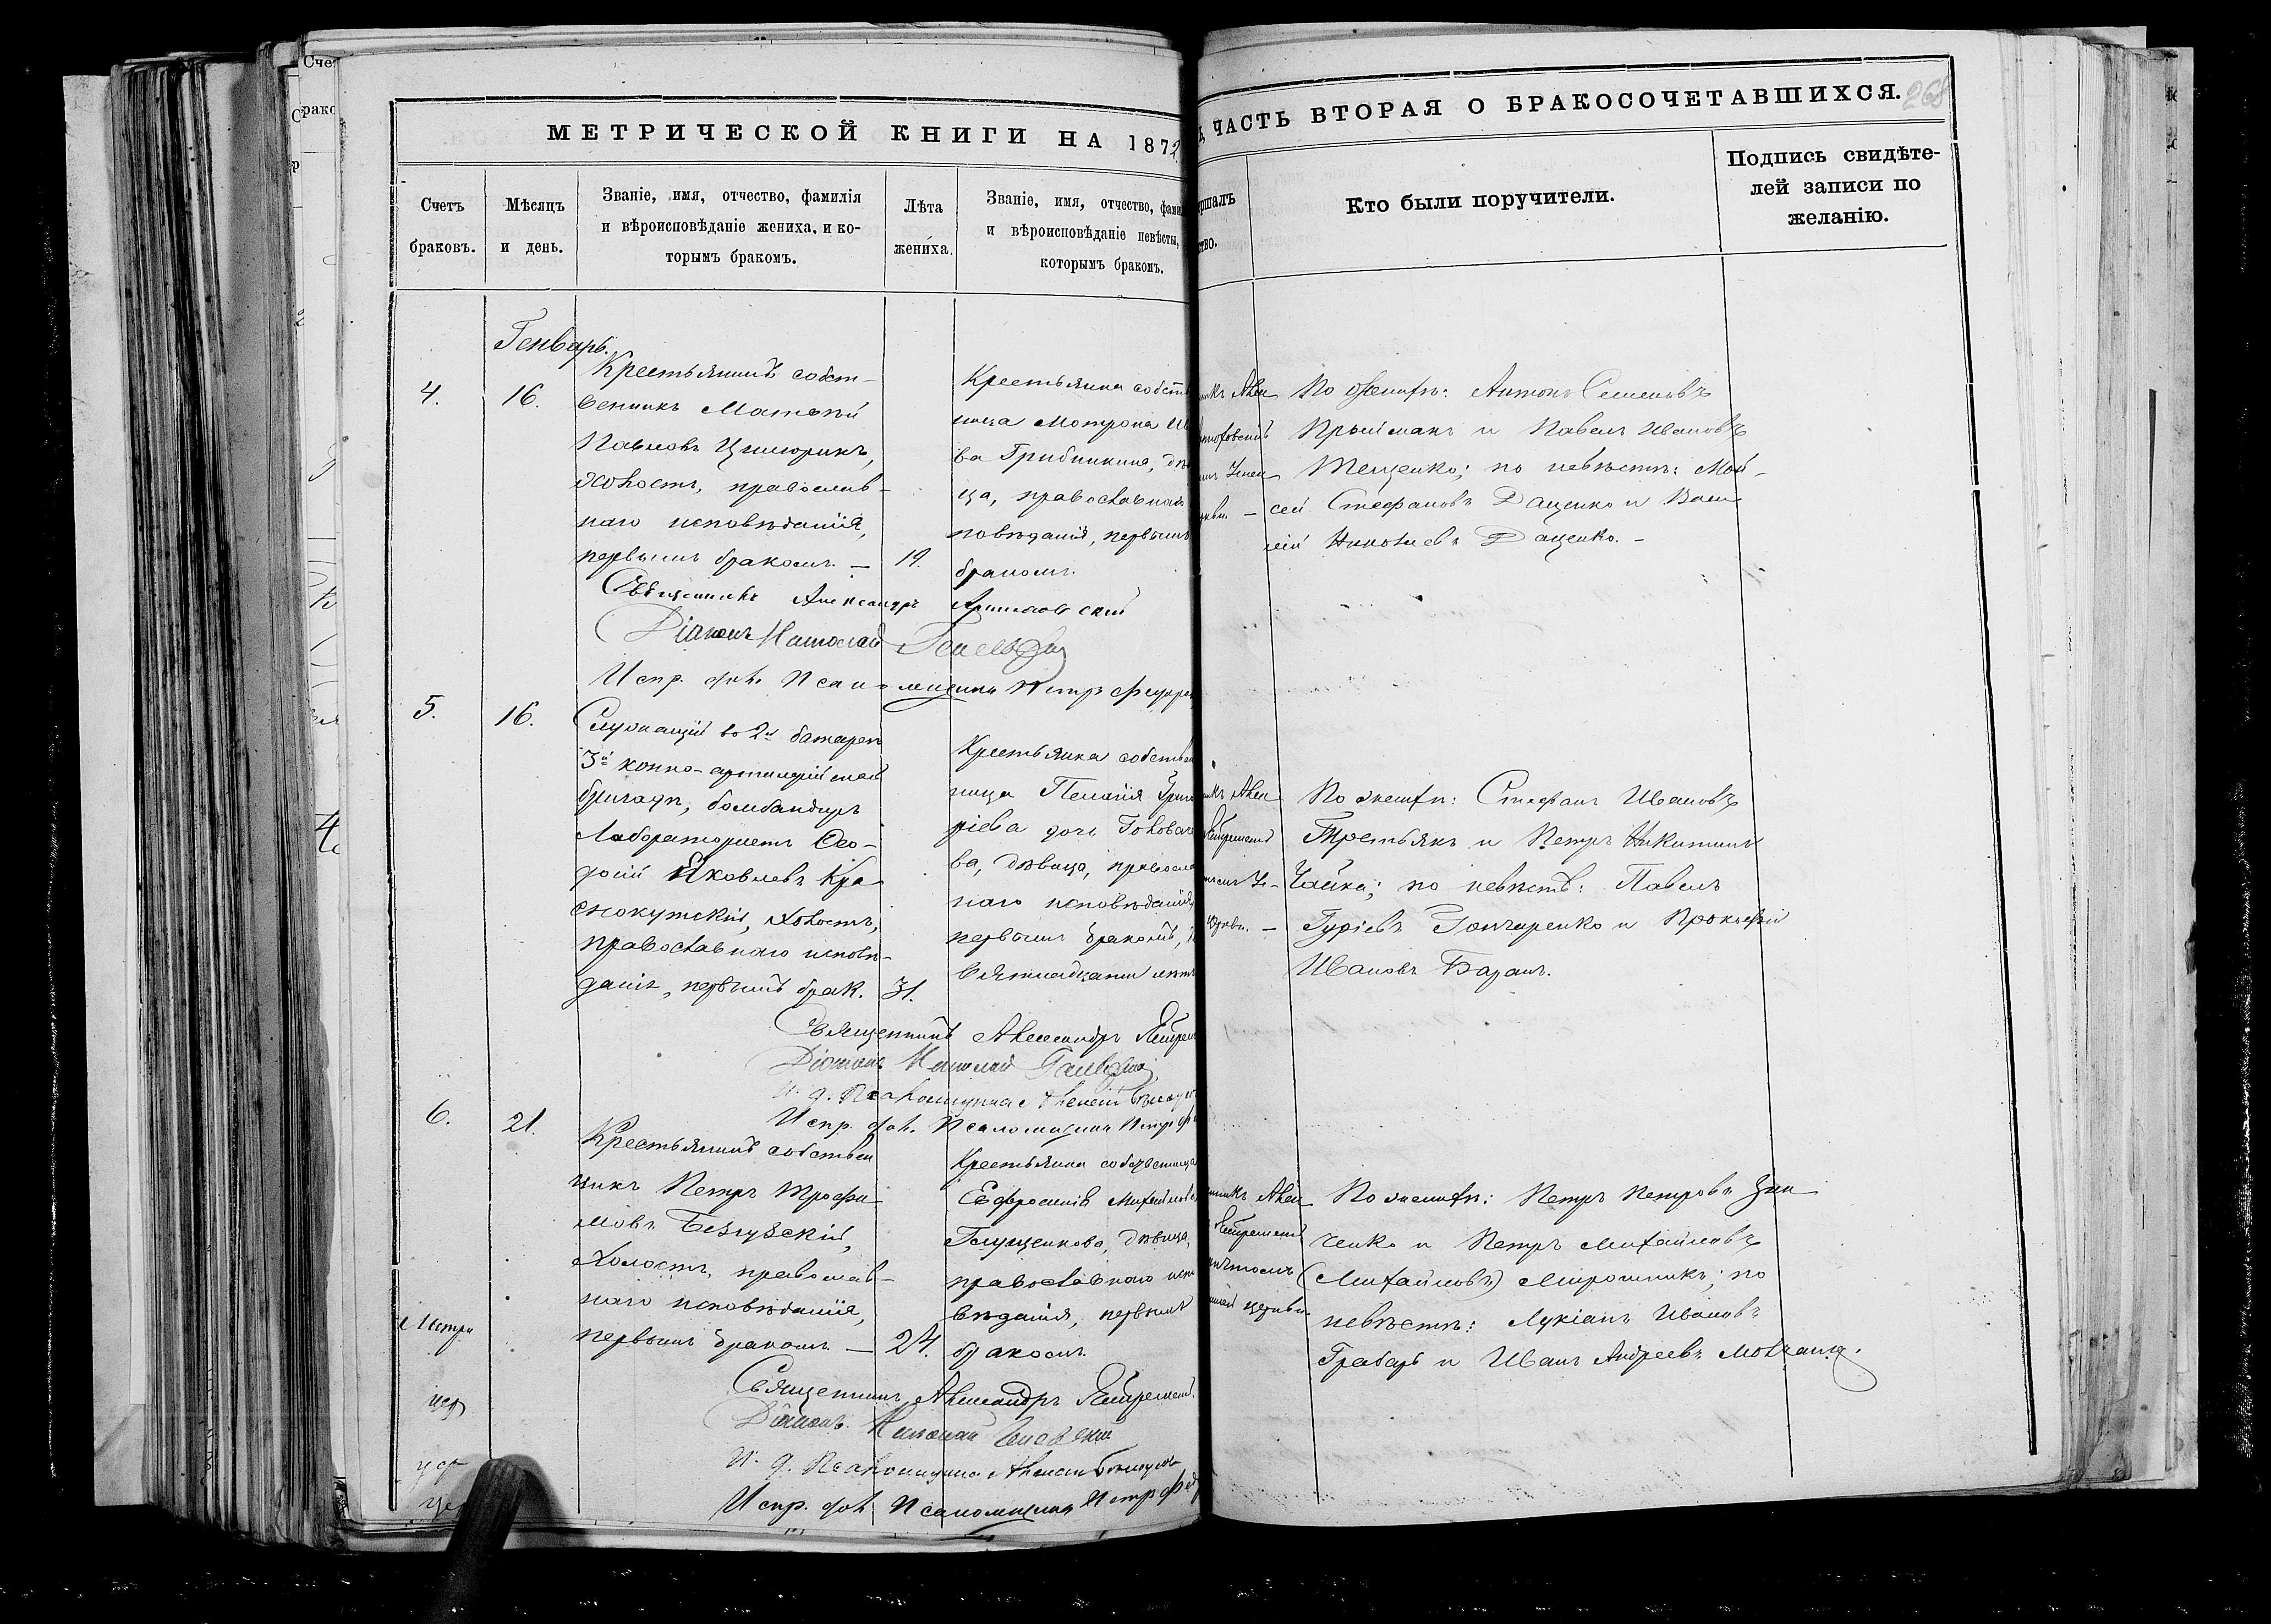 МЕТРИЧЕСКОЙ КНИГИ НА 1872
ЧАСТЬ ВТОРАЯ О БРАКОСОЧЕТАВШИХСЯ.
268
Счетъ браковъ.
Мѣсяцъ и день.
Званіе, имя, отчество, фамилія
и вѣроисповѣданіе жениха, и ко-
торымъ бракомъ.
Лѣта жениха.
Званіе, имя, отчество, фами
и вѣроисповѣданіе невѣсты,
которымъ бракомъ.
ршалъ
ство.
Кто были поручители.
Подпись свидѣте-
лей записи по
желанію.
Генварь.
4.
16.
Крестьянинъ собст-
венникъ Матвѣй
Павловъ Цимюрикъ,
холостъ, православ-
наго исповѣданія,
первымъ бракомъ. —
19.
Крестьянка собств
ница Мотрона Ив
ва Грибникина, дѣв
ца, православнаго
повѣданія, первымъ
бракомъ.
По женихѣ: Антонъ Семеновъ
Прыймакъ и Павелъ Ивановъ
Тещенко; по невѣстѣ: Мой-
сей Стефановъ Даценко и Васи
лій Николаевъ Даценко. —
Священникъ Александръ
Діаконъ Николай
Испр. дол. Псаломщика Петръ Федоро
5.
16.
Служащій во 2й батареѣ
3й конно-артиллерійской
бригады, бомбандиръ
Лаборатористъ Ѳео-
досій Яковлевъ Кра
снокутскій, холостъ,
православнаго исповѣ-
данія, первымъ брак.
31.
Крестьянка собствен
ница Пелагія Григо
ріева дочь Головаче
ва, дѣвица, православ
наго исповѣданія
первымъ бракомъ,
вятнадцати лѣтъ
По женихѣ: Стефанъ Ивановъ
Третьякъ и Петръ Никитинъ
Чайка; по невѣстѣ: Павелъ
Гуріевъ Гончаренко и Прокофій
Ивановъ Баранъ.
Священникъ Александръ
Діаконъ Николай
И. д. Псаломщика Алексій
Испр. дол. Псаломщика Петръ Ф
6.
21.
Крестьянинъ собствен
никъ Петръ Трофи
мовъ Безгубскій,
холостъ, православ-
наго исповѣданія,
первымъ бракомъ. —
24.
Крестьянка собственница
Евфросинія Михайлова
Глущенкова, дѣвица,
православнаго испо
вѣданія, первымъ
бракомъ.
По женихѣ: Петръ Петровъ Зин
ченко и Петръ Михайловъ
(Михайловъ) Мирошникъ; по
невѣстѣ: Лукіанъ Ивановъ
Грабарь и Иванъ Андреевъ Мовчанъ.
Священникъ Александръ
Діаконъ Николай
И. д. Псаломщика Алексій
Испр. дол. Псаломщика Петръ Фед